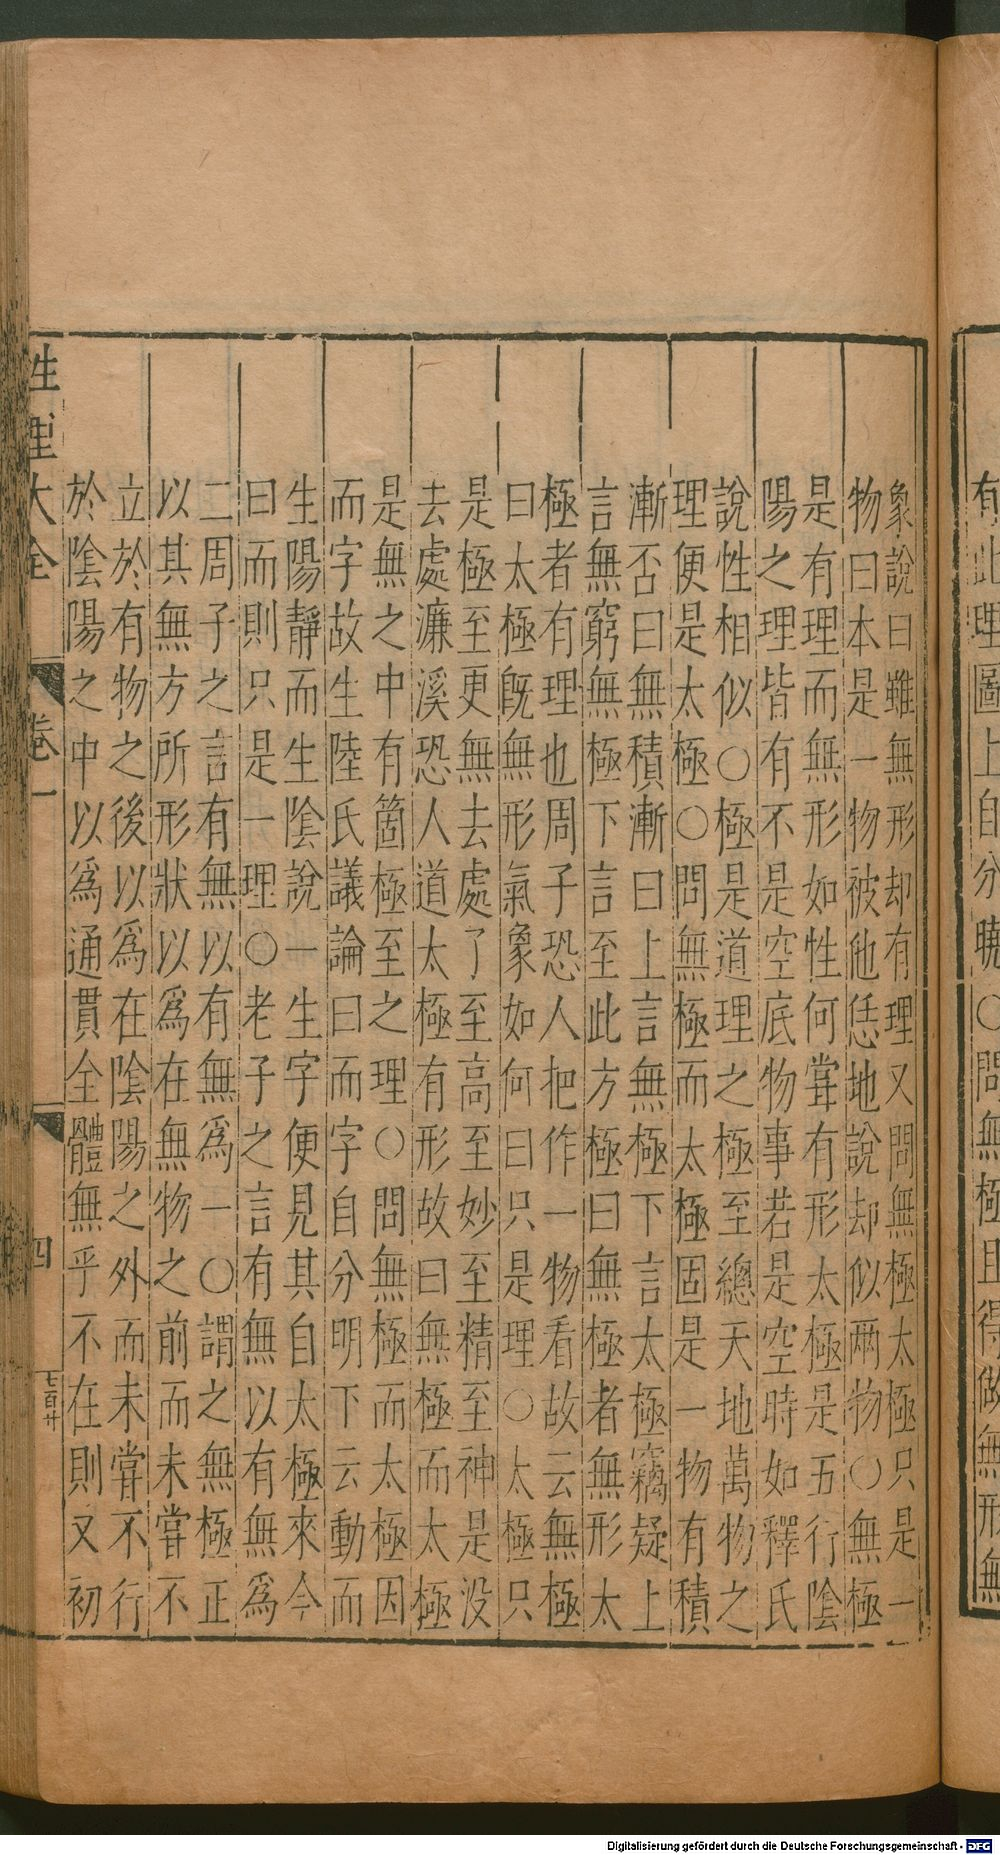 有此理圖上自分曉○問無極且得做無形無
象說曰雖無形却有理又問無極太極只是一
物曰本是一物被他恁地說却似兩物○無極
是有理而無形如性何甞有形太極是五行陰
陽之理皆有不是空底物事若是空時如釋氏
說性相似○極是道理之極至總天地萬物之
理便是太極○問無極而太極固是一物有積
漸否曰無積漸曰上言無極下言太極竊疑上
言無窮無極下言至此方極曰無極者無形太
極者有理也周子恐人把作一物看故云無極
曰太極旣無形氣象如何曰只是理○太極只
是極至更無去處了至高至妙至精至神是没
去處濂溪恐人道太極有形故曰無極而太極
是無之中有箇極至之理○問無極而太極因
而字故生陸氏議論曰而字自分明下云動而
生陽靜而生陰說一生字便見其自太極來今
曰而則只是一理○老子之言有無以有無爲
二周子之言有無以有無爲一○謂之無極正
以其無方所形狀以爲在無物之前而未嘗不
立於有物之後以爲在陰陽之外而未甞不行
於陰陽之中以爲通貫全體無乎不在則又初
性理大全 卷一 四 七百廿
Digitalisierung gefördert durch die Deutsche Forschungsgemeinschaft - DFG